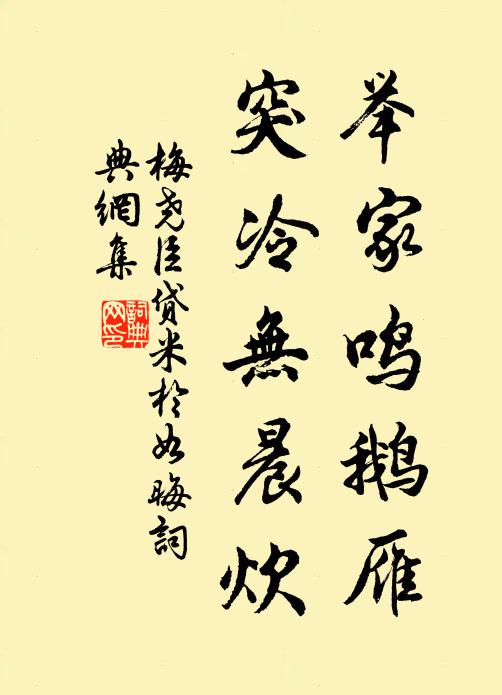 举家鸣鹅雁
突冷無晨炊
梅尧臣贷米於如晦詞
典網集
詞典
网印